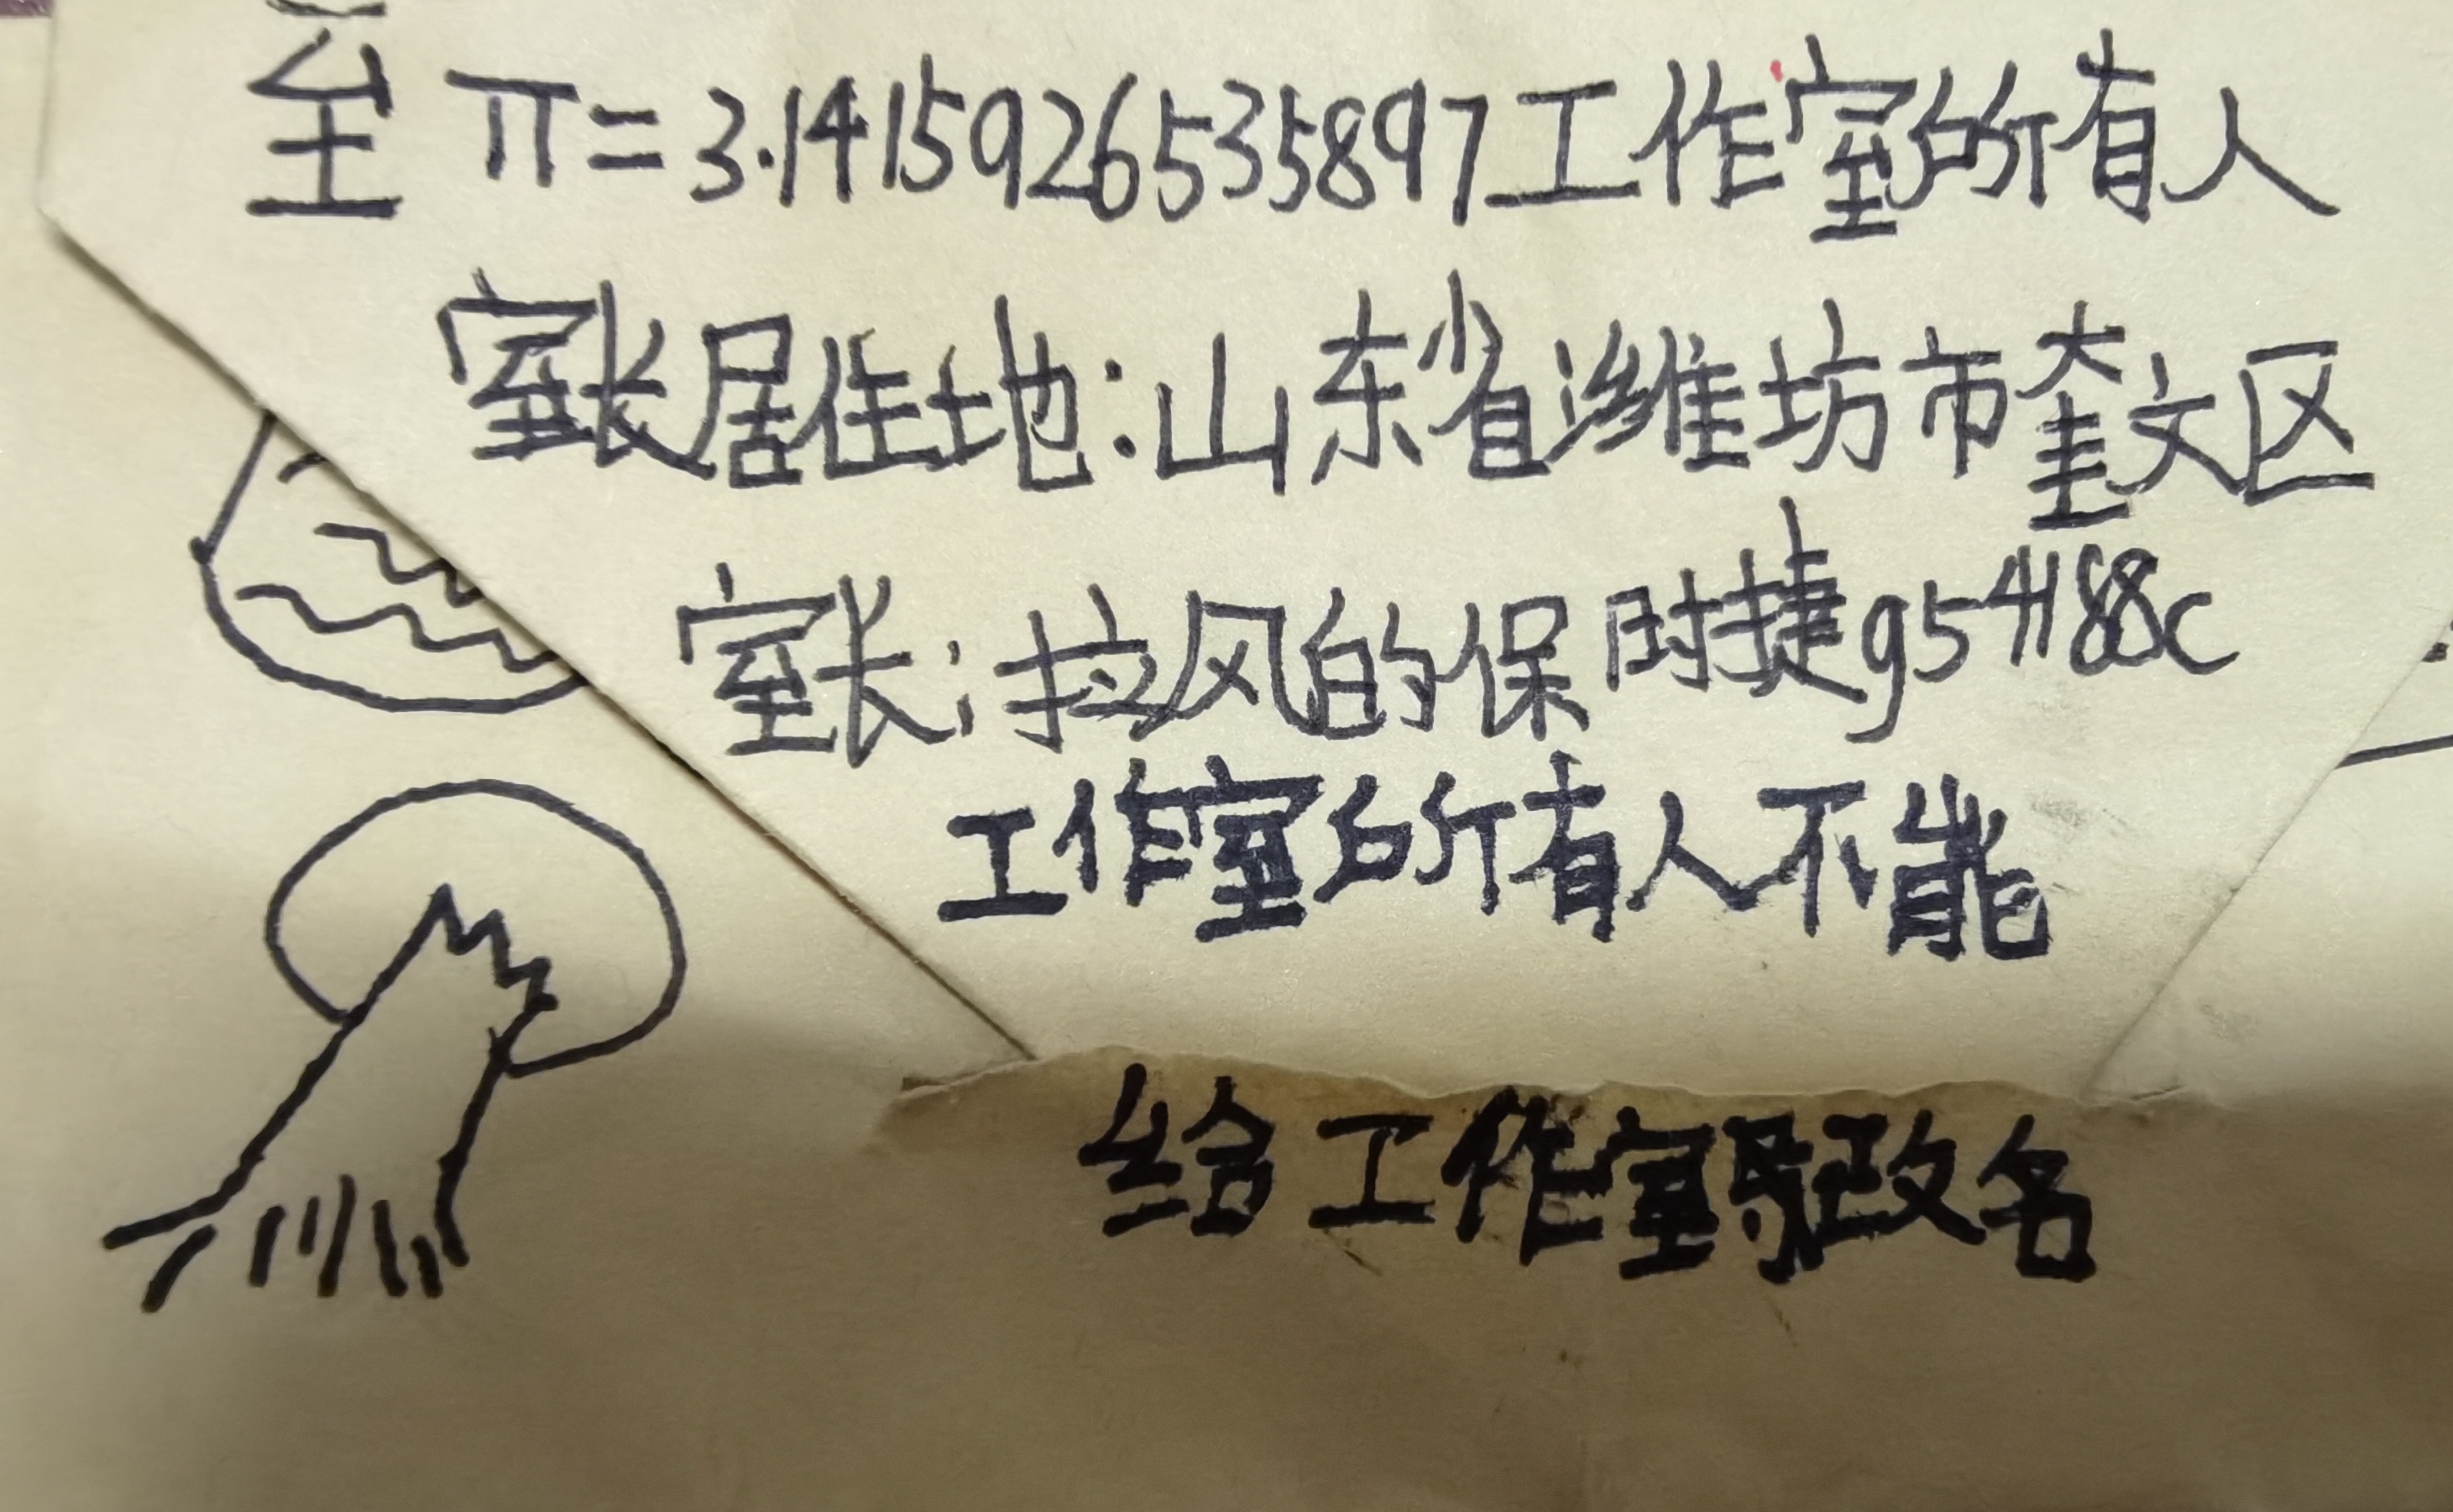 至 π=3.1415926535897工作室的所有人
室长居住地:山东省潍坊市奎文区
室长:拉风的保时捷g54188c
工作室的所有人不能
给工作室改名